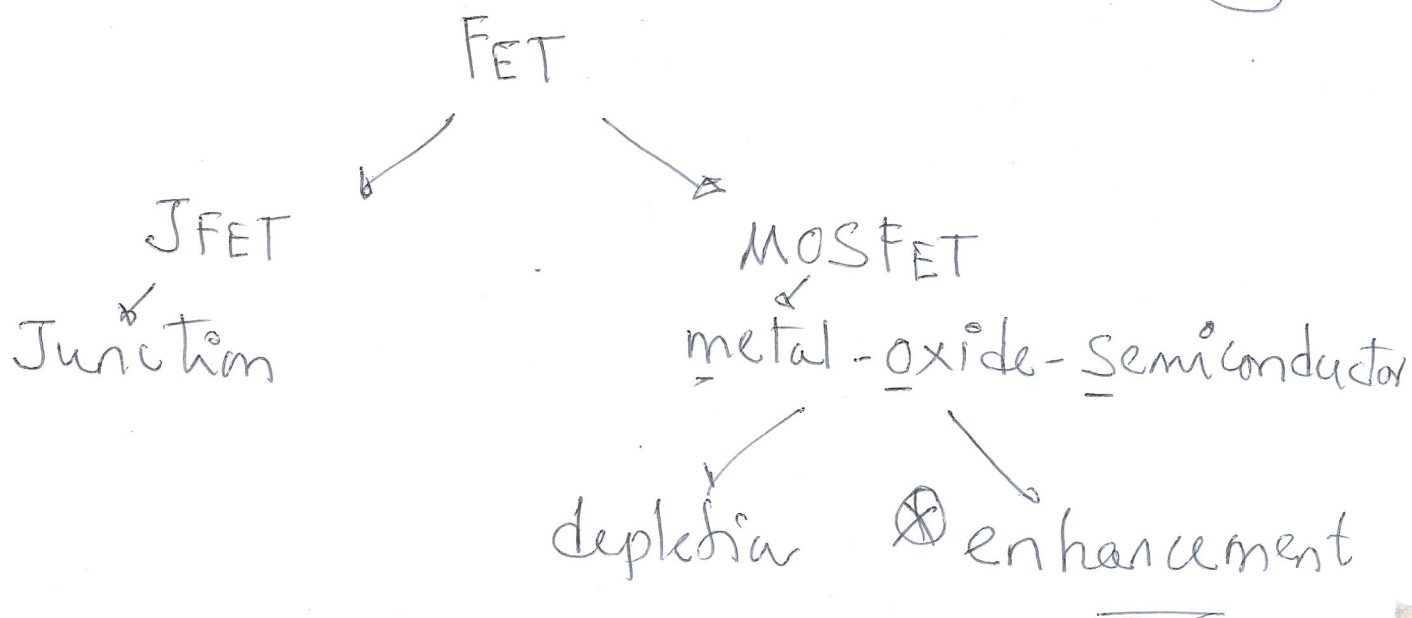 FET
JFET MOSFET
Junction metal-oxide-semiconductor
depletion enhancement